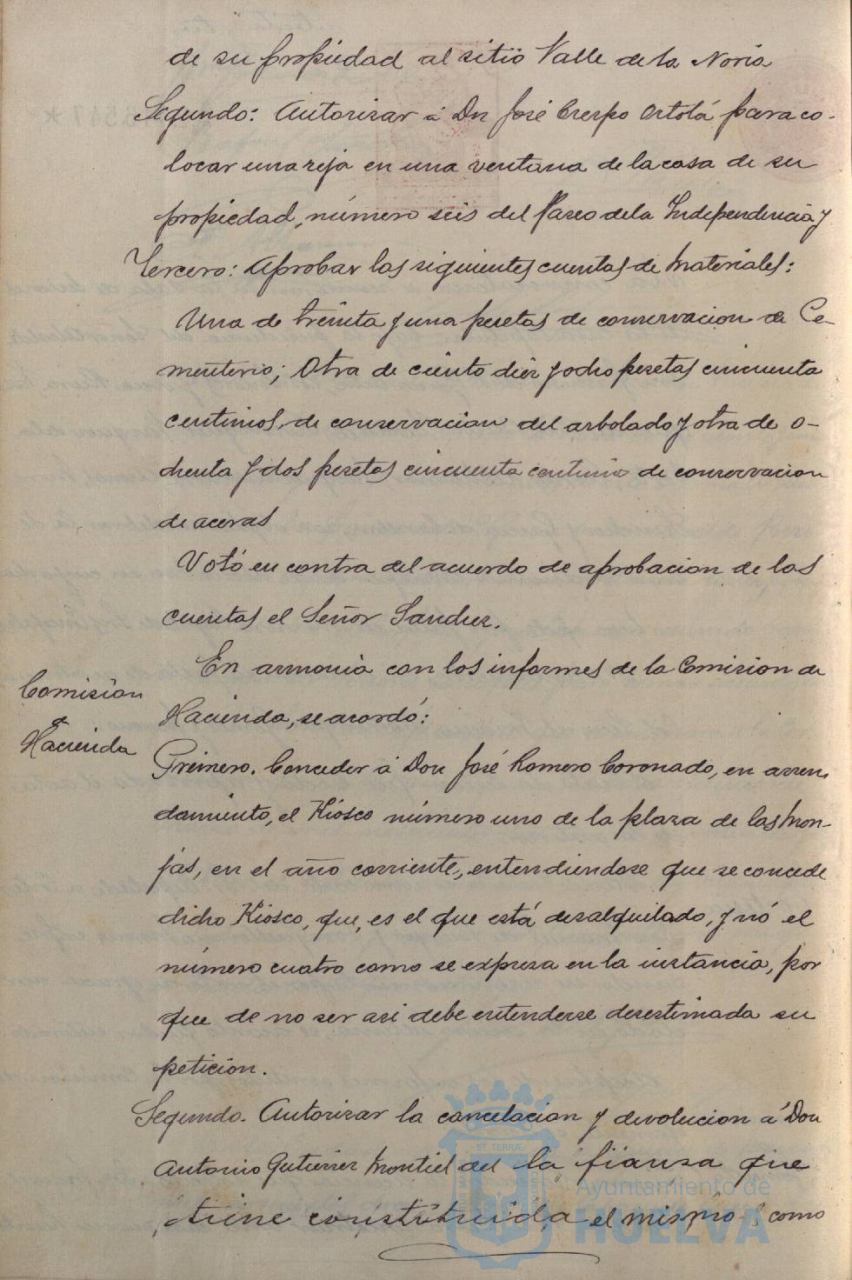 de su propiedad al sitio Valle de la Noria
Segundo: Autorizar á Dn José Crespo Ortolá para co-
locar una reja en una ventana de la casa de su
propiedad, número seis del Paseo de la Independencia y
Tercero: Aprobar las siguientes cuentas de materiales:
Una de treinta y una pesetas de conservacion de Ce-
menterio; Otra de ciento diez y ocho pesetas cincuenta
centimos, de conservacion del arbolado y otra de o-
chenta y dos pesetas cincuenta centimos de conservacion
de aceras
Votó en contra del acuerdo de aprobacion de las
cuentas el Señor Sanchez.
En armonia con los informes de la Comision de
Comision
Hacienda, se acordó:
de
Hacienda
Primero. Conceder á Don José Romero Coronado, en arren
damiento, el Kiosco número uno de la plaza de las Mon-
jas, en el año corriente, entendiendose que se concede
dicho Kiosco, que, es el que está desalquilado, y nó el
número cuatro como se expresa en la instancia, por
que de no ser asi debe entenderse desestimada su
peticion.
Segundo. Autorizar la cancelacion y devolucion á Don
Antonio Gutierrez Montiel de la fianza que
tiene constituida el mismo como
ST TERRAE
Ayuntamiento de
HUELVA